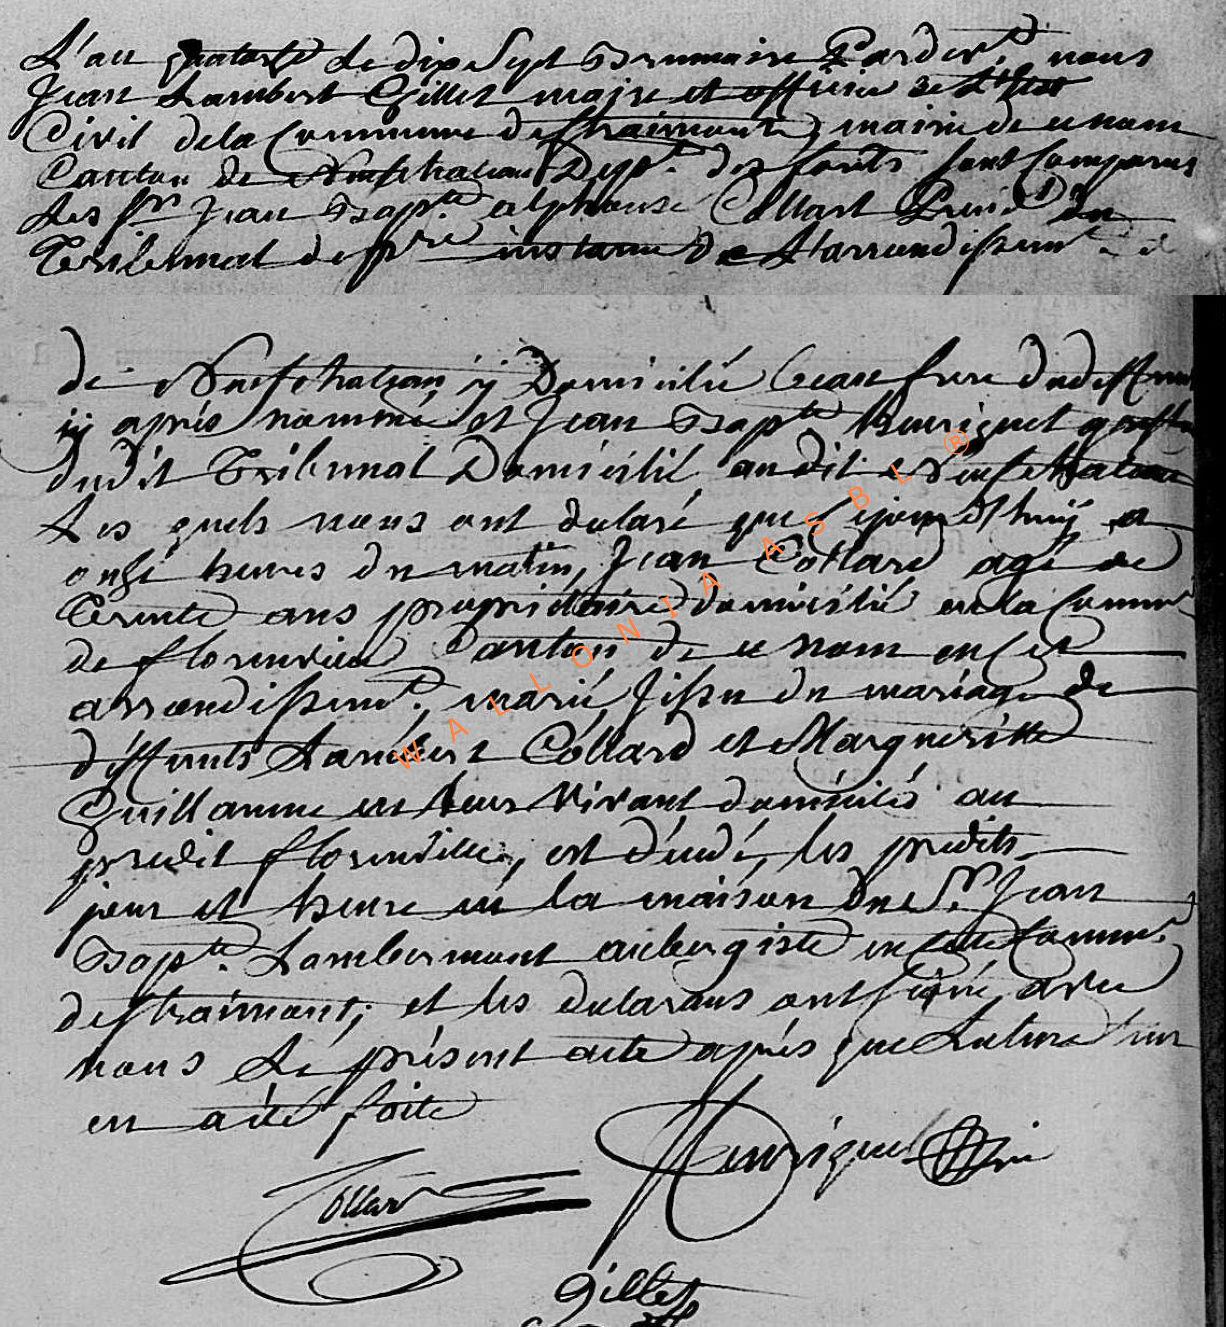 L'an quatorze le dix sept Brumaire Pardevt nous
Jean Lambert Gillet maire et officier de l'Etat
Civil de la Commune de Straimont, mairie de ce nom
Canton de Neufchateau Dept des forêts sont Comparus
Les Srs Jean Bapte alphonse Collart Présidt du
Tribunal de pre instance de L'arrondissemt de
de Neufchateau, ÿ Domicilié frere du deffunt
ÿ après nommé, et Jean Bapte Henriquet greffier
dudit Tribunal Domicilié au dit Neufchateau
Les quels nous ont declaré que ce jourd'huÿ a
onze heures du matin, Jean Collard agé de
Trente ans proprietaire domicilié en la Commune
de florenville Canton de ce nom en cet
arrondissemt, marié, issu du mariage de
deffunts Lambert Collard et Margueritte
Guillaume en leur vivant domiciliés au
predit florenville, est décédé, les predits
jour et heure en la maison du Sr Jean
Bapte Lambermont aubergiste en cette Commune
de Straimont; et les declarans ont signé avec
nous Le présent acte après que Lecture leur
en a été faite
Henriquet
Collart
Gillet
WALLONIA ASBL ®